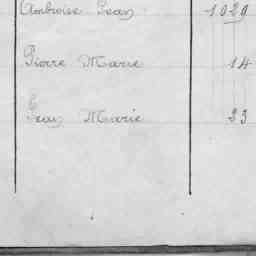 Ambroise Jean 1029
Pierre Marie 14
Jean Marie 23